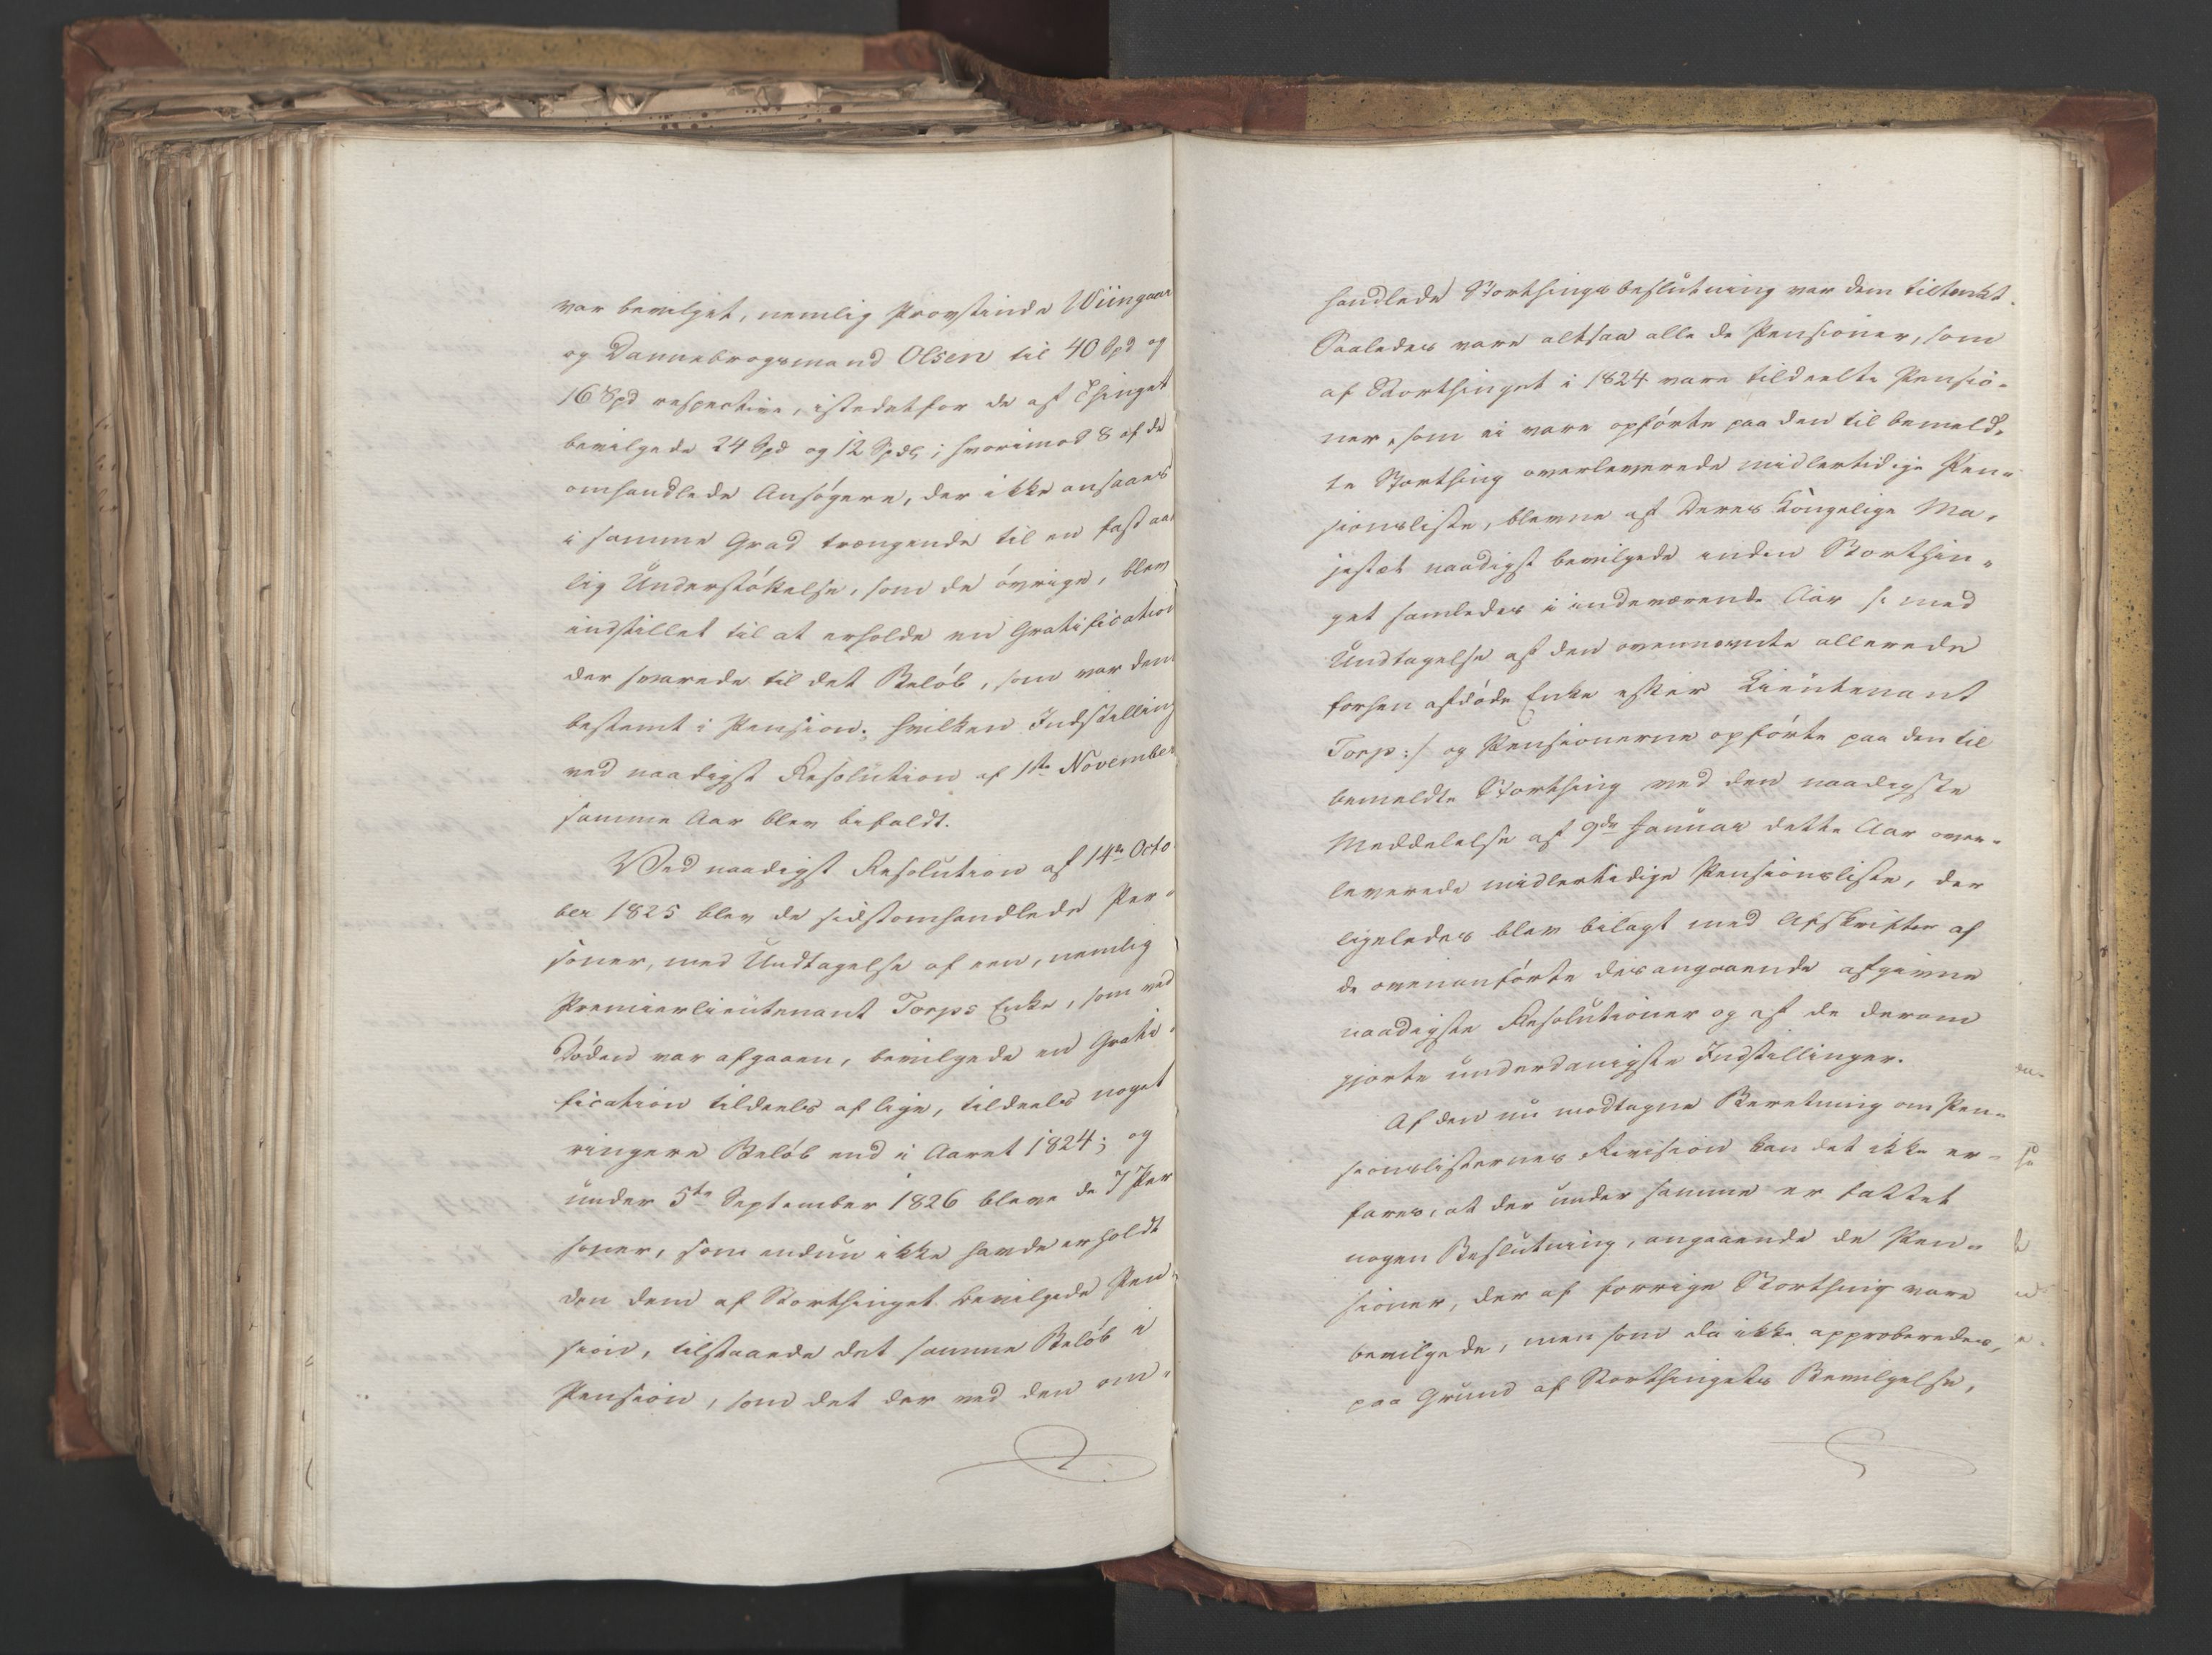 var bevilget, nemlig Provstinde Wiingaar
og Dannebrogsmand Olsen til 40 Spd og
16 Spd respective, istedetfor de af Thinget
bevilgede 24 Spd og 12 Spd; hvorimod 8 af de
omhandlede Ansøgere, der ikke ansaaes
i samme Grad trængende til en fast aar
lig Understøttelse, som de øvrige, blev
indstillet til at erholde en Gratification
der svarede til det Beløb, som var dem
bestemt i Pension; hvilken Indstilling
ved naadigst Resolution af 1ste November
samme Aar blev bifaldt.
Ved naadigst Resolution af 14de Octo
ber 1825 blev de sidstomhandlede Per-
soner, med Undtagelse af een, nemlig
Premierlieutenant Torps Enke, som ved
Døden var afgaaen, bevilgede en Grati-
fication tildeels af lige, tildeels noget
ringere Beløb end i Aaret 1824; og
under 5te September 1826 bleve de 7 Per
soner, som endnu ikke havde erholdt
den dem af Storthinget bevilgede Pen-
sion, tilstaaede det samme Beløb i
Pension, som det der ved den om-
handlede Storthingsbeslutning var dem tiltænkt.
Saaledes vare altsaa alle de Pensioner, som
af Storthinget i 1824 vare tildeelte Pensio-
ner, som ei vare opførte paa den til bemeld-
te Storthing overleverede midlertidige Pen-
sionsliste, blevne af Deres Kongelige Ma-
jestæt naadigst bevilgede inden Storthin-
get samledes i indeværende Aar /: med
Undtagelse af den ovennævnte allerede
forhen afdøde Enke efter Lieutenant
Torp :/ og Pensionerne opførte paa den til
bemeldte Storthing ved den naadigste
Meddelelse af 9de Januar dette Aar over-
leverede midlertidige Pensionsliste, der
ligeledes blev bilagt med Afskrifter af
de ovenanførte desangaaende afgivne
naadigste Resolutioner og af de derom
gjorte underdanigste Indstillinger.
Af den nu modtagne Beretning om Pen-
sionslisternes Revision kan det ikke er-
fares, at der under samme er fattet
nogen Beslutning, angaaende de Pen-
sioner, der af forrige Storthing vare
bevilgede, men som da ikke approberedes,
paa Grund af Storthingets Bevilgelse,